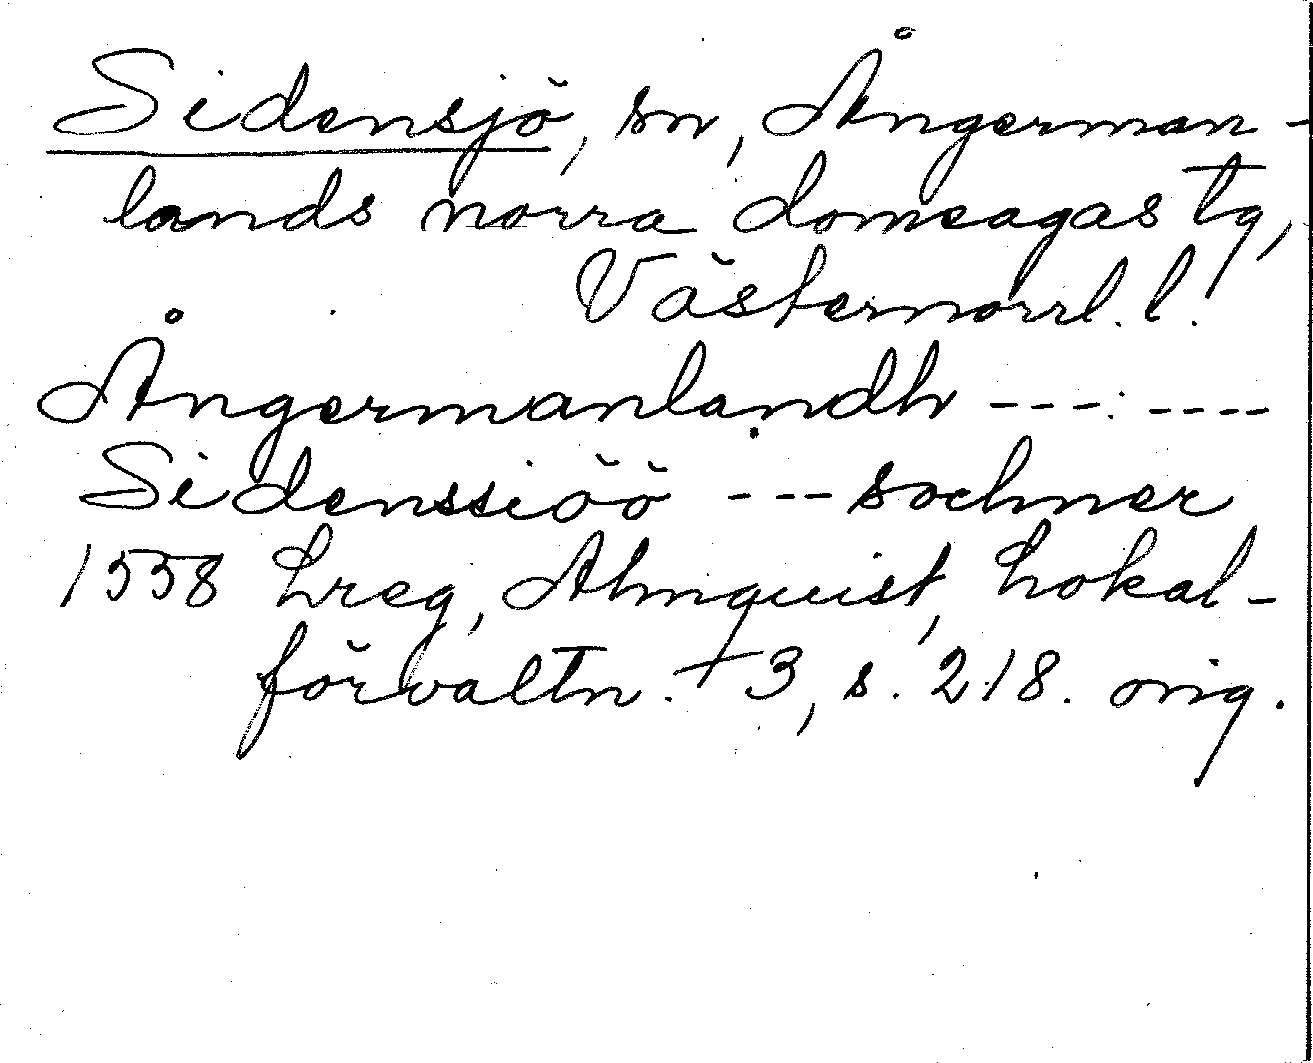 Sidensjö, sn, Ångerman-
lands norra domsagas tg,
Västernorrl. l.
Ångermanlandh ---.----
Sidenssiöö --- sochner
1558 Lreg, Almquist, Lokal-
förvaltn. + 3, s. 218. orig.